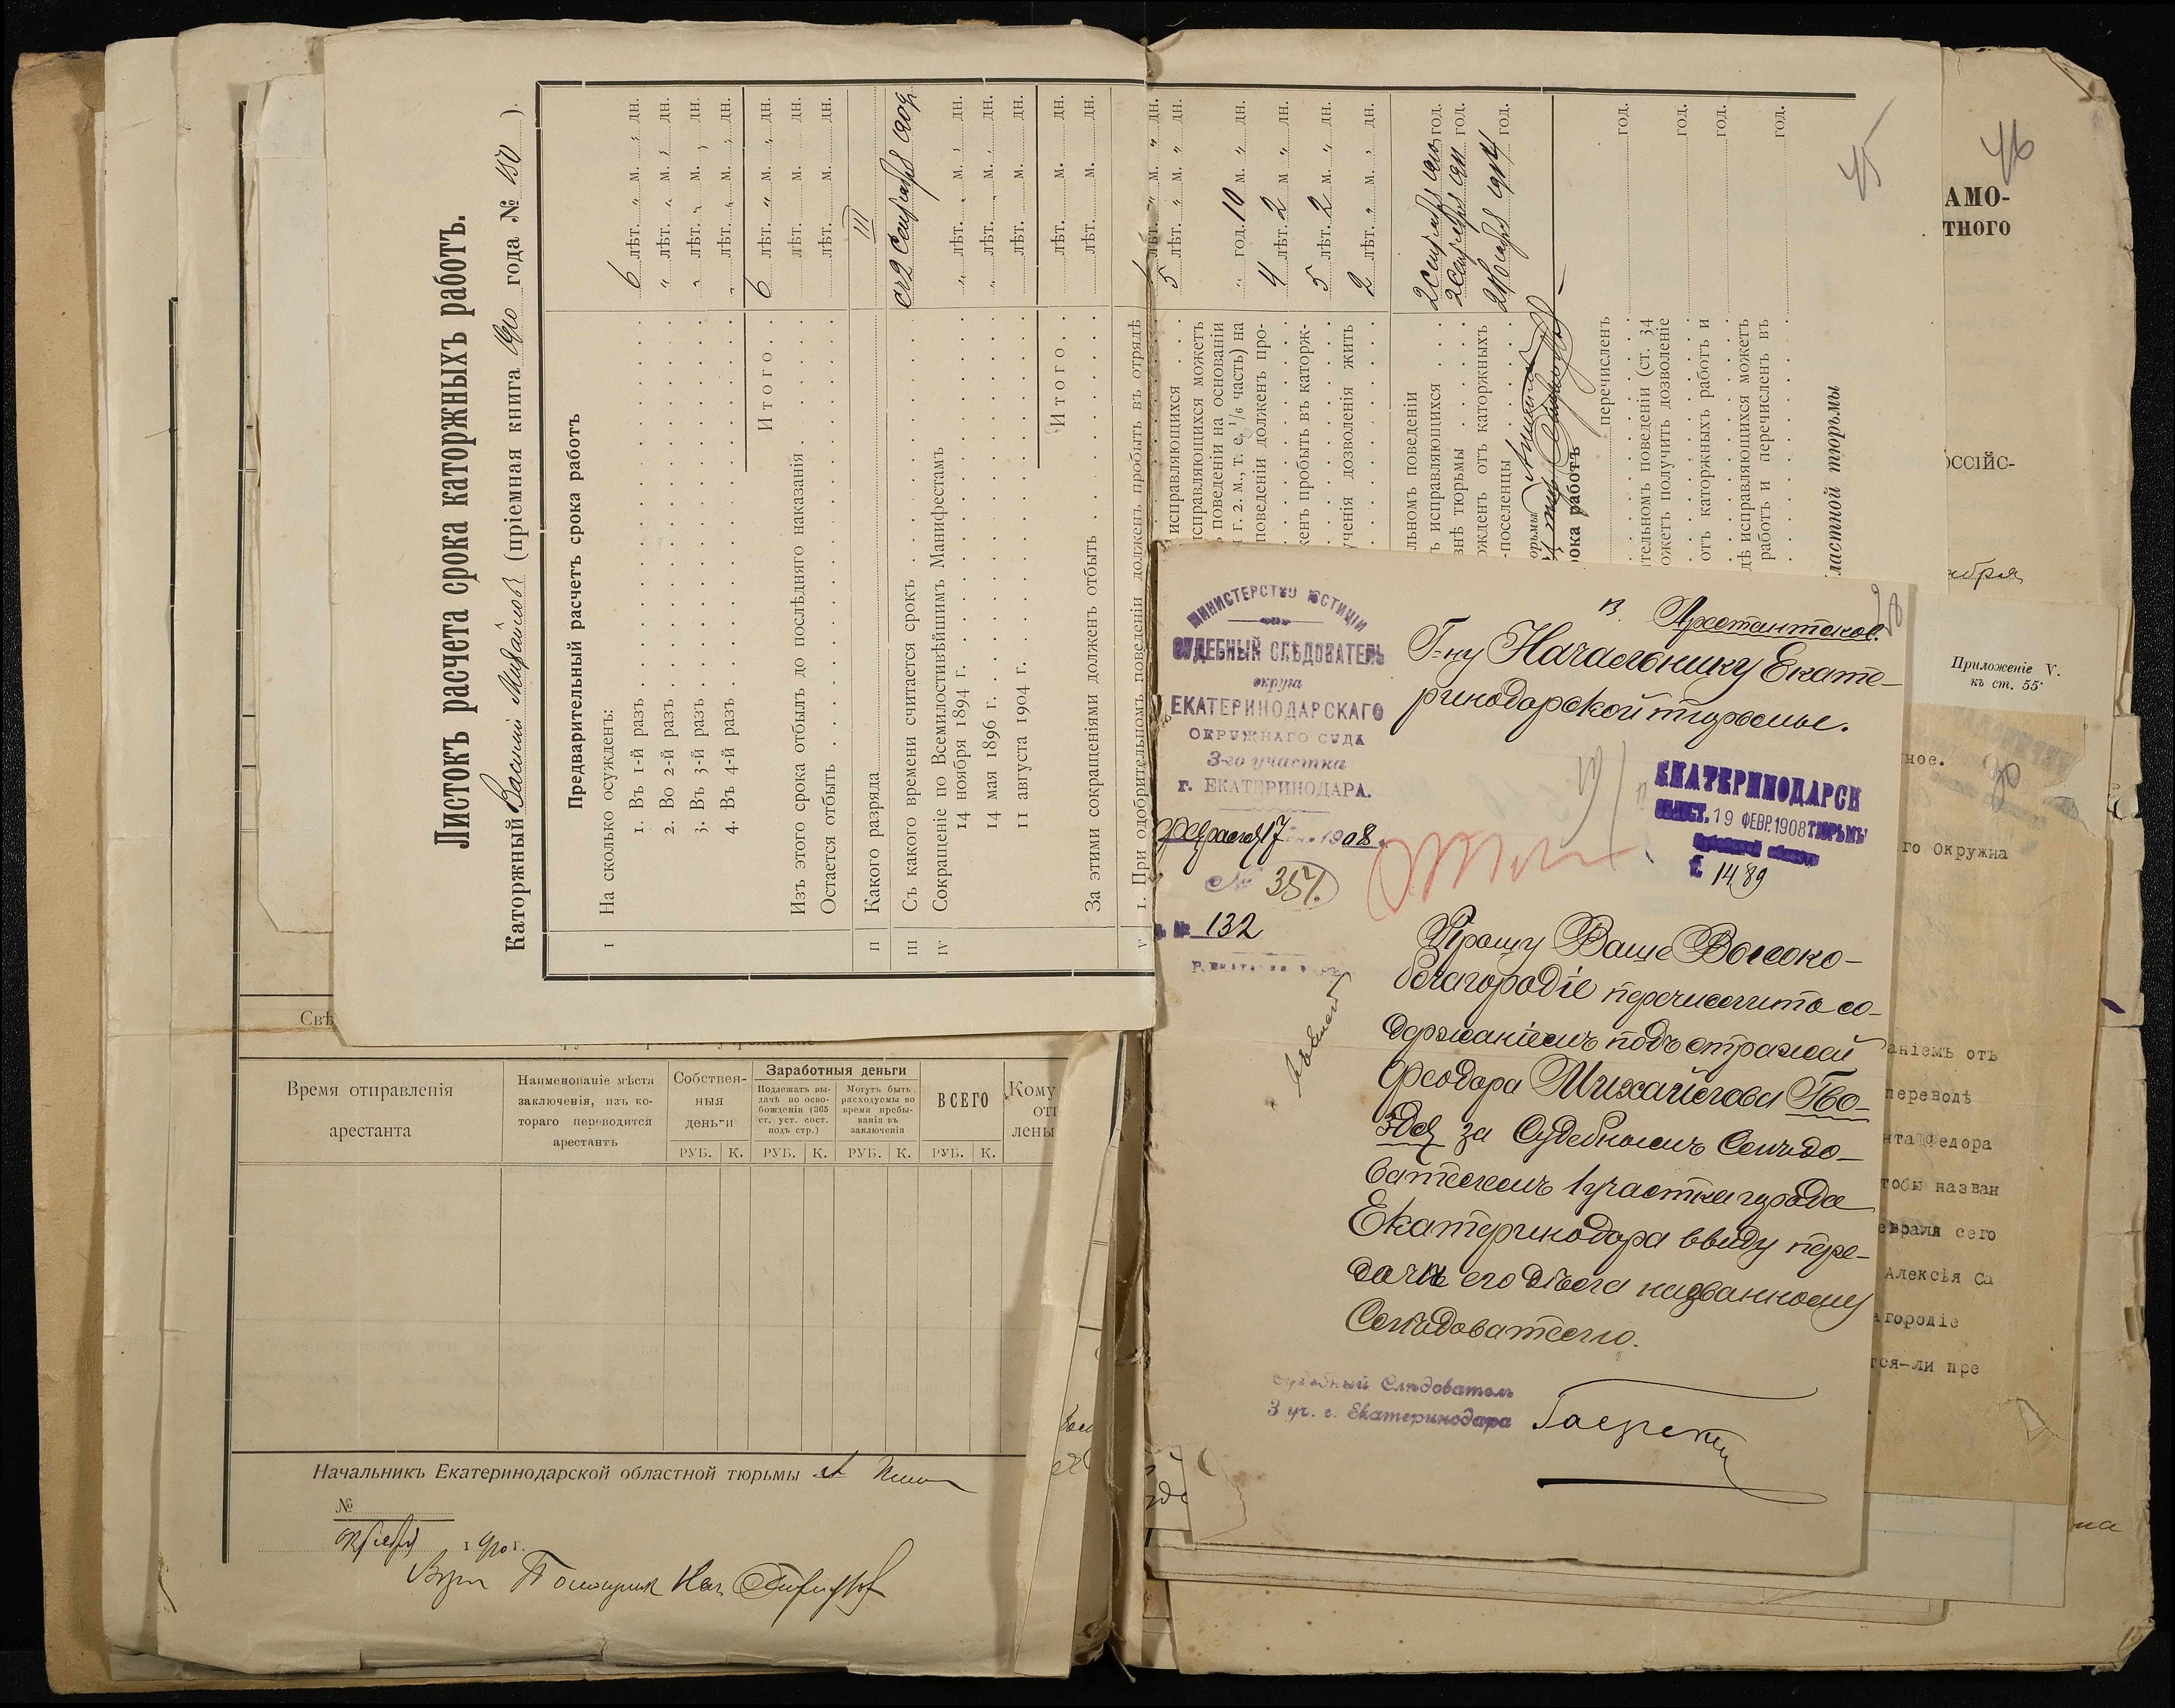 Листокъ расчета срока каторжныхъ работъ.
Каторжный Василій Михайловъ (пріемная книга 1910 года № 150)
Предварительный расчетъ срока работъ
I На сколько осужденъ:
1. Въ 1-й разъ 6 лѣт. „ м. „ дн.
2. Во 2-й разъ „ лѣт. „ м. „ дн.
3. Въ 3-й разъ „ лѣт. „ м. „ дн.
4. Въ 4-й разъ „ лѣт. „ м. „ дн.
Итого 6 лѣт. „ м. „ дн.
Изъ этого срока отбылъ до послѣдняго наказанія лѣт. м. дн.
Остается отбыть лѣт. м. дн.
II Какого разряда III
III Съ какого времени считается срокъ съ 2 Сентября 1909
IV Сокращеніе по Всемилостивѣйшимъ Манифестамъ
14 ноября 1894 г. „ лѣт. „ м. „ дн.
14 мая 1896 г. „ лѣт. „ м. „ дн.
11 августа 1904 г. лѣт. м. дн.
Итого лѣт. м. дн.
За этими сокращеніями долженъ отбыть лѣт. м. дн.
V 1. При одобрительномъ поведеніи долженъ пробыть въ отрядѣ
лѣт. „ м. „ дн.
исправляющихся 5 лѣт. „ м. „ дн.
справляющихся можетъ
поведеніи на основаніи
г. 2. м., т. е. 1/6 часть) на „ год. 10 м. „ дн.
поведеніи долженъ про-
4 лѣт. 2 м „ дн.
женъ пробыть въ каторж-
5 лѣт. 2 м. „ дн.
ученія дозволенія жить
2 лѣт. „ м. „ дн.
льномъ поведеніи
ъ исправляющихся 2 Сентября 1910 год.
внѣ тюрьмы 2 Сентября 1911 год.
ожденъ отъ каторжныхъ
-поселенцы 1914 год.
орьмы
рока работъ
перечисленъ
год.
тельномъ поведеніи (ст. 34
ожетъ получить дозволеніе
год.
отъ каторжныхъ работъ и
год.
дѣ исправляющихся можетъ
работъ и перечисленъ въ
год.
ластной тюрьмы
45
46
АМО-
ТНОГО
ОССІЙС-
ября
Приложеніе V.
къ ст. 55
ное.
го Окружна
аніемъ отъ
переводѣ
нта Федора
тобы назван
евраля сего
Алексѣя Са
агородіе
тся-ли пре
Свѣ
Время отправленія арестанта
Наименованіе мѣста заключенія, изъ ко-тораго переводится арестантъ
Собствен-ныя деньги
Заработныя деньги
Подлежатъ вы-дачѣ по осво-божденіи (365 ст. уст. сост. подъ стр.)
Могутъ быть расходуемы во время пребы-ванія въ заключеніи
ВСЕГО
Кому
от
лены
РУБ. К. РУБ. К. РУБ. К. РУБ. К.
Начальникъ Екатеринодарской областной тюрьмы
№
октября 1910 г.
Помощник Нач
МИНИСТЕРСТВО ЮСТИЦІИ
СУДЕБНЫЙ СЛѢДОВАТЕЛЬ
округа
ЕКАТЕРИНОДАРСКАГО
ОКРУЖНАГО СУДА
3-го участка
г. ЕКАТЕРИНОДАРА.
Февраля 17 дн. 1908
№ 351.
№ 132
В. Арестантское.
Г-ну Начальнику Екате-
ринодарской тюрьмы.
ЕКАТЕРИНОДАРСК
ОБЛАСТ. 19 ФЕВР. 1908 ТЮРЬМЫ
Кубанской области
1489
Прошу Ваше Высоко-
благородіе перечислить со-
держаніемъ подъ стражей
Феодора Михайлова Гво-
здя за Судебнымъ Слѣдо-
вателемъ 1 участка города
Екатеринодара ввиду пере-
дачи его дѣла названному
Слѣдователю.
Судебный Слѣдователь
3 уч. г. Екатеринодара